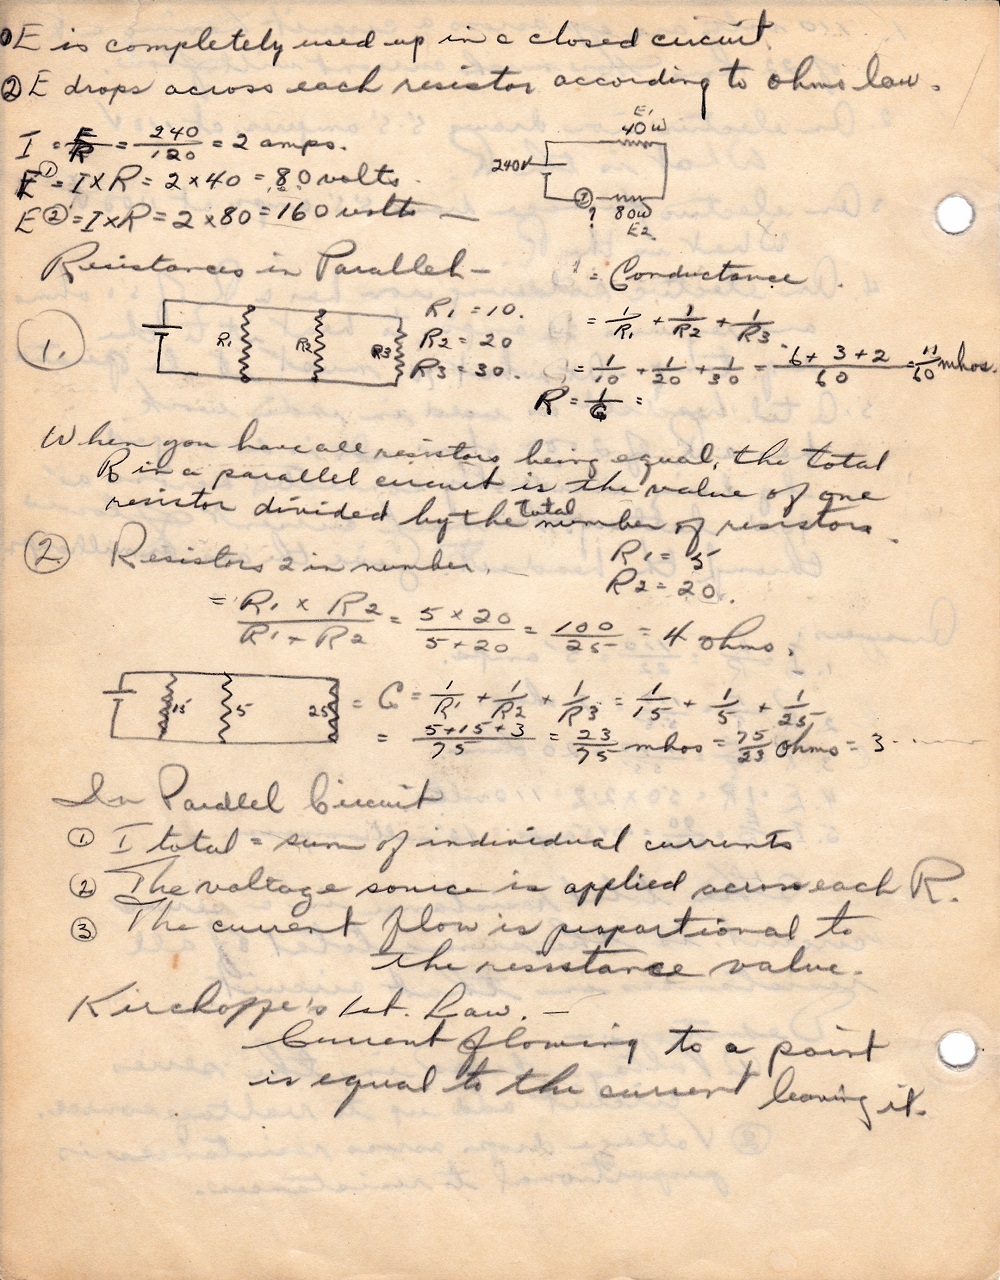 ① E is completely used up in a closed circuit.
② E drops across each resistor according to ohms law.
I = E/R = 240/120 = 2 amps.
E① = I X R = 2 x 40 = 80 volts.
E② = I x R = 2 x 80 = 160 volts —
E1
40 ω
240V
?
80ω
E2
Resistances in Parallel —
= Conductance.
1.
R1
R2
R3
R1 = 10.
R2 = 20
R3 = 30.
= 1/R1 + 1/R2 + 1/R3.
= 1/10 + 1/20 + 1/30 = 6 + 3 + 2/60 = 11/60 mhos.
R = 1/G =
When you have all resistors being equal, the total
R in a parallel circuit is the value of one
resistor divided by the total number of resistors.
② Resistors 2 in number. —
R1 = 5
R2 = 20.
= R1 x R2/R1 + R2 = 5 x 20/5 + 20 = 100/25 = 4 ohms.
15
5
25
= G = 1/R1 + 1/R2 + 1/R3 = 1/15 + 1/5 + 1/25
= 5+15+3/75 = 23/75 mhos = 75/23 ohms = 3
In Parallel Circuit
① I total = sum of individual currents
② The voltage source is applied across each R.
③ The current flow is proportional to
the resistance value.
Kirchoppe's 1st. Law. —
Current flowing to a point
is equal to the current leaving it.